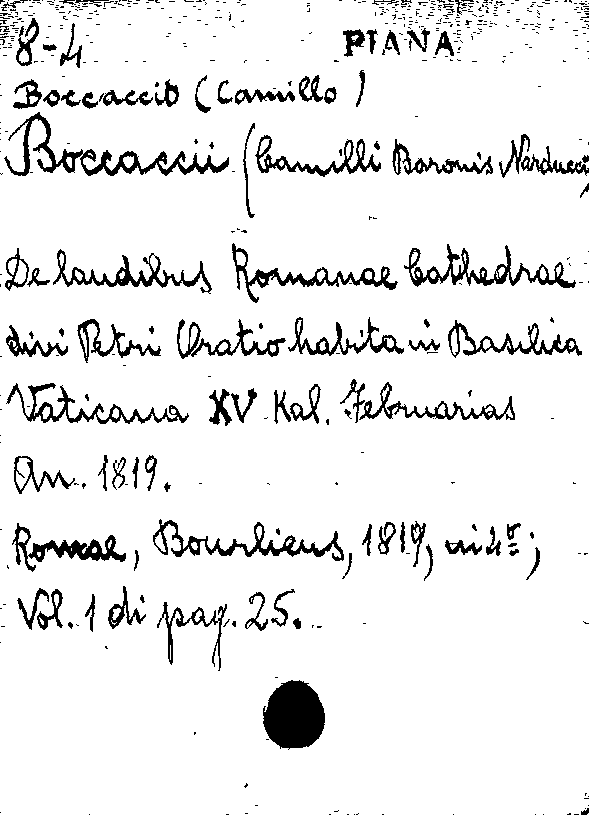 8-4 PIANA
Boccaccio (Camillo)
Boccaccii (Camilli Baronis Narducci)
De laudibus Romanae Cathedrae
divi Petri Oratio habita in Basilica
Vaticana XV Kal. Februarias
An. 1819.
Romae, Bourlieus, 1819, in 4º;
Vol. 1 di pag. 25.